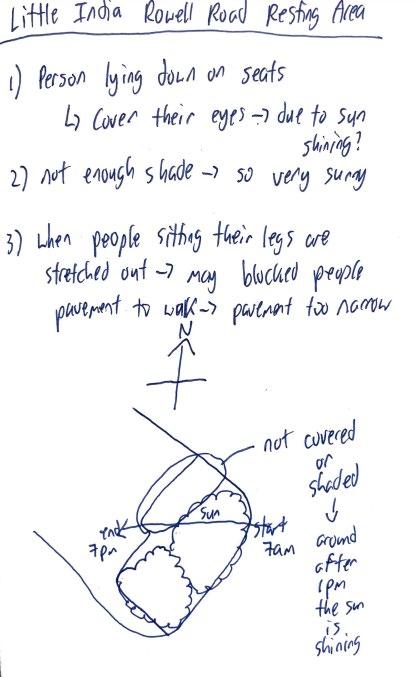 Little India Rowell Road Resting Area
1) Person lying down on seats
↳ Cover their eyes → due to sun
shining?
2) not enough shade → so very sunny
3) When people sitting their legs are
stretched out → may blocked people
pavement to walk → pavement too narrow
N
not covered
or
shaded
↓
around
after
1pm
the sun
is
shining
sun
end
7pm
start
7am